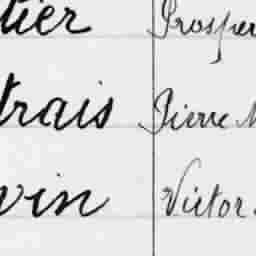 tier Prosper
trais Pierre M
vin Victor